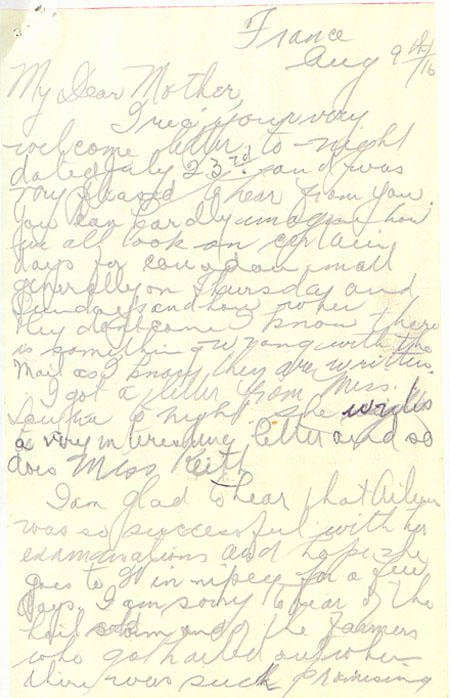 France
Aug 9th/16
My Dear Mother,
I rec'd your very
welcome letter to-night
dated July 23rd. and was
very pleased to hear from you.
You can hardly imagine how
we all look on certain
days for Canadian mail
generally on Thursday and
Sundays and now when
they dont come I know there
is something wrong with the
Mail as I know they are written.
I got a letter from Miss.
to night she writes
a very interesting letter and so
does Miss Keith
I am glad to hear that Aileen
was so successful with her
examinations and hope she
goes to Winnipeg for a few
days. I am sorry to hear of the
hail storm and of the farmers
who got hailed out when
there was such promising